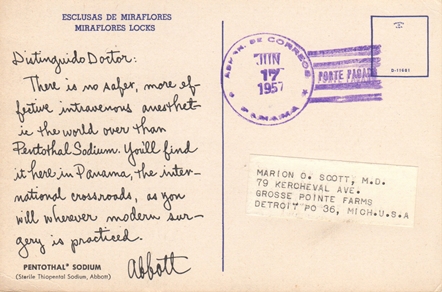 ESCLUSAS DE MIRAFLORES
MIRAFLORES LOCKS
Distinguido Doctor:
There is no safer, more ef-
fective intravenous anesthet-
ic the world over than
Pentothal Sodium. You'll find
it here in Panama, the inter-
national crossroads, as you
will wherever modern sur-
gery is practiced.
Abbott
PENTOTHAL® SODIUM
(Sterile Thiopental Sodium, Abbott)
ADMON. DE CORREOS
JUN
17
1957
PANAMA
PORTE PAGADO
MARION O. SCOTT, M.D.
79 KERCHEVAL AVE.
GROSSE POINTE FARMS
DETROIT PO 36, MICH.U.S.A